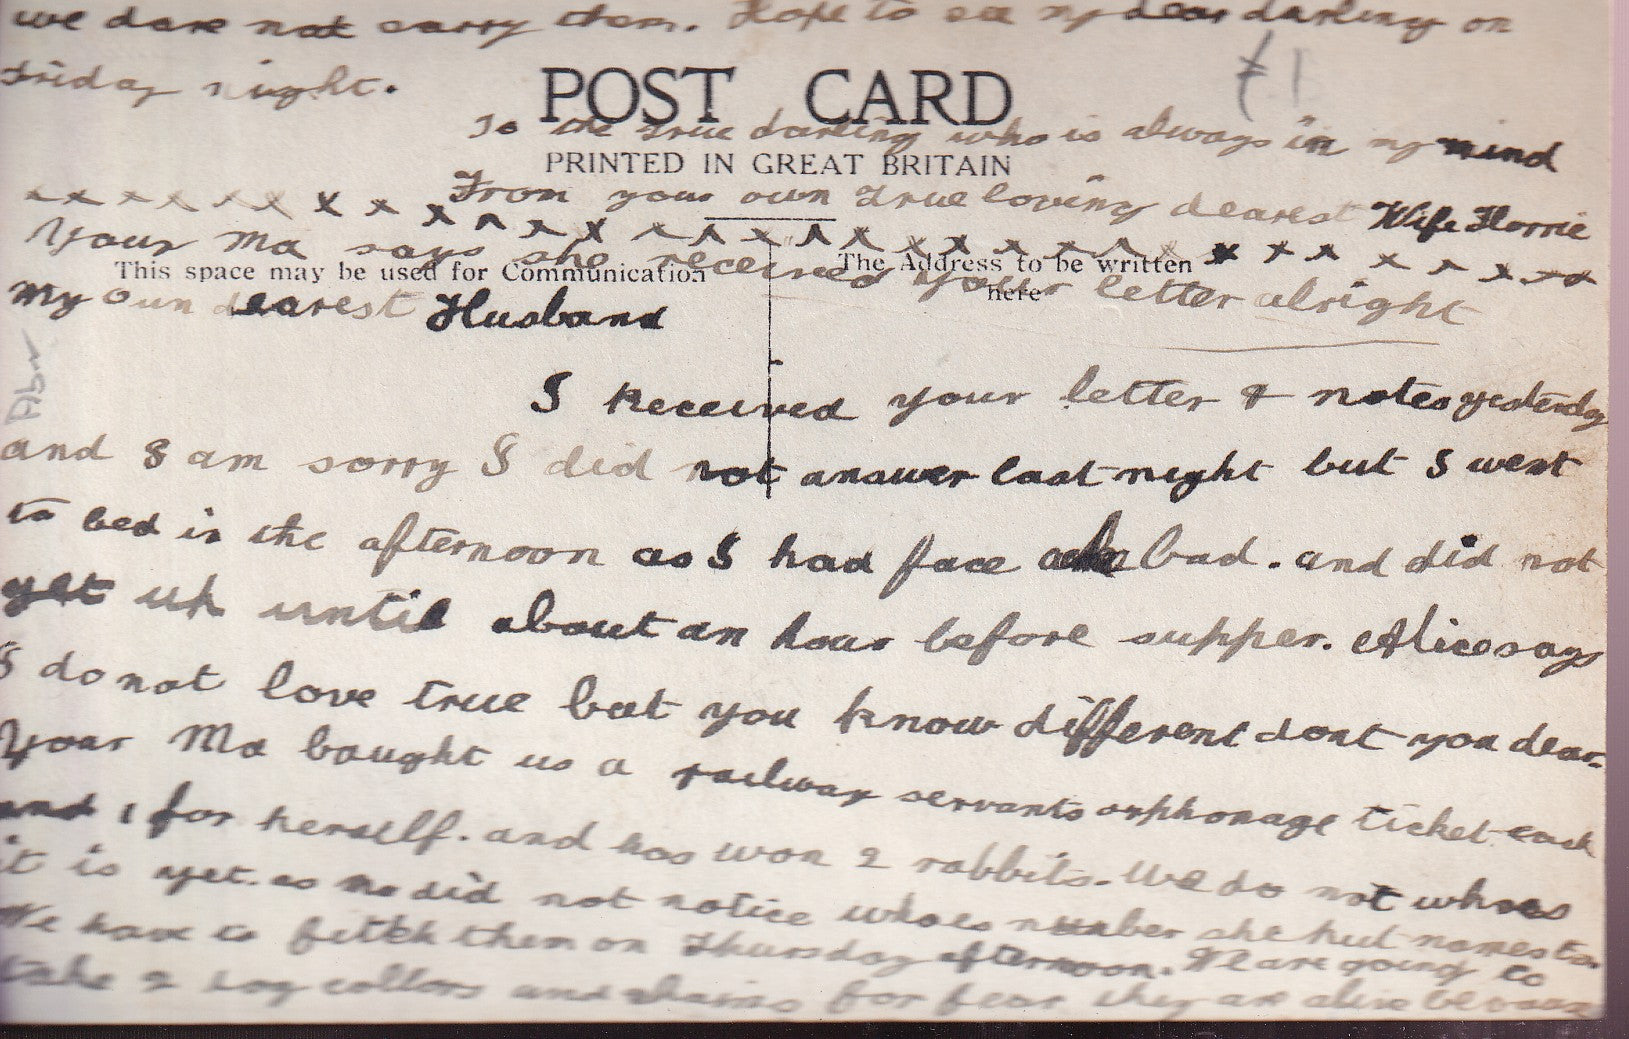 we dare not carry them. Hope to see my dear darling on
Friday night.
POST CARD
To the true darling who is always in my mind
PRINTED IN GREAT BRITAIN
From your own true loving dearest Wife Florrie
x x x x x x x x x x x x x x x x x x x x x x x x x x x x x x x x
Your Ma says she received your letter alright
This space may be used for Communication
The Address to be written
here
My own dearest Husband
I Received your letter & notes yesterday
and I am sorry I did not answer last night but I went
to bed in the afternoon as I had face ache bad. and did not
get up until about an hour before supper. Alice says
I do not love true but you know different dont you dear.
Your Ma bought us a railway servants orphonage ticket each
and 1 for herself. and has won 2 rabbits. We do not whoes
it is yet. as Ma did not notice whoes number she put names to.
We have to fetch them on Thursday afternoon. We are going to
take 2 dog collars and chains for fear they are alive because